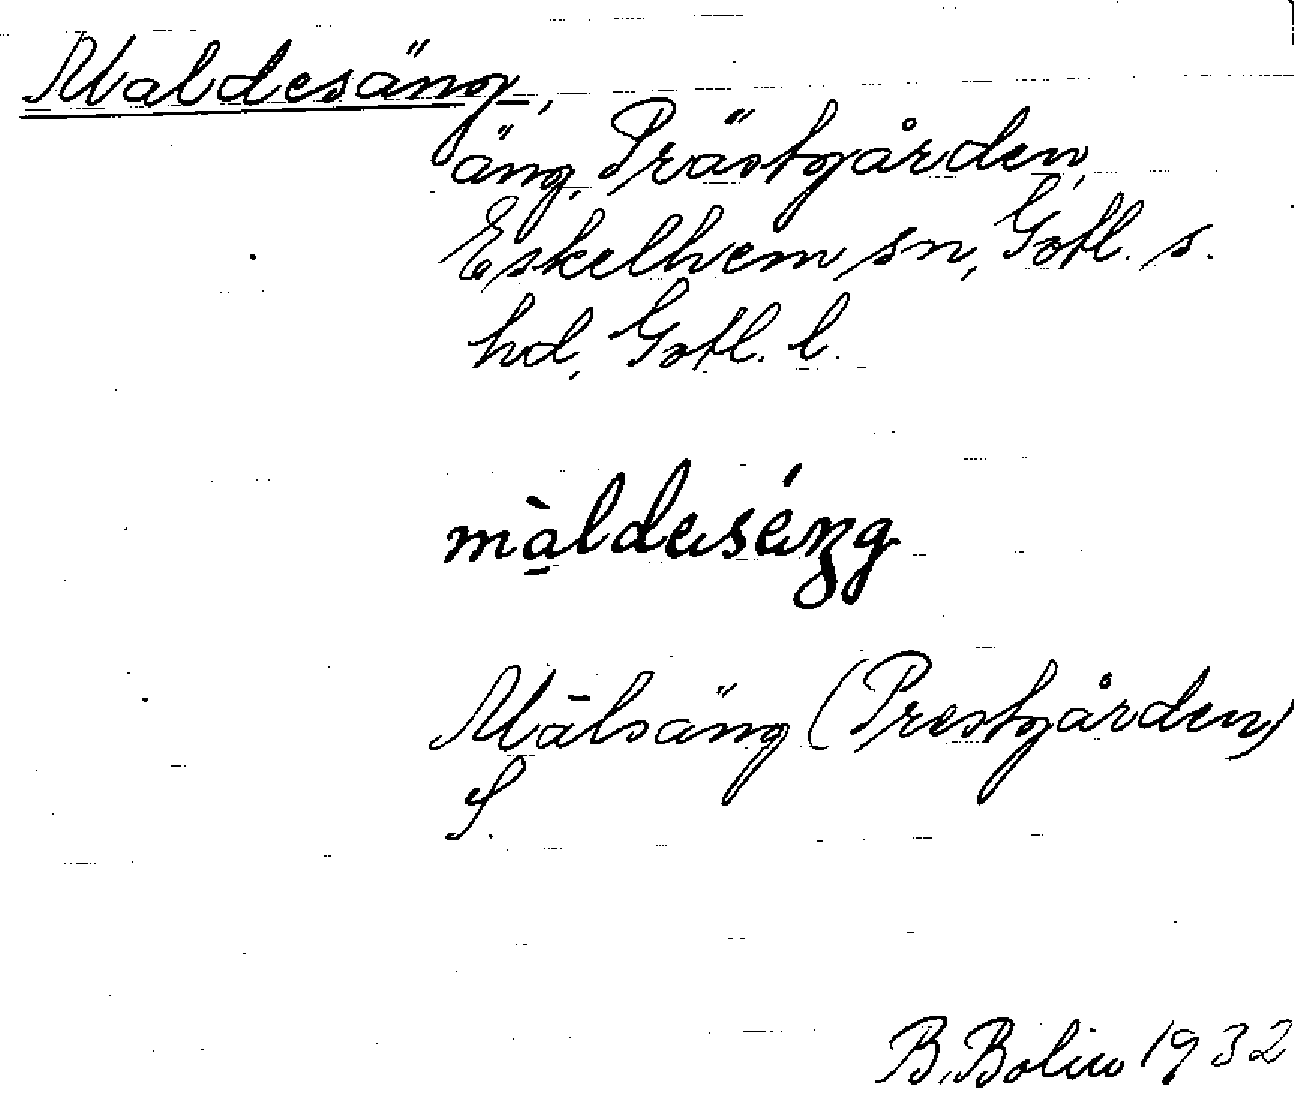 Maldesäng,
äng, Prästgården,
Eskelhem sn, Gotl. s.
hd, Gotl. l.
màldeséŋg
Mālsäng (Prestgården)
S.
B. Bolin 1932